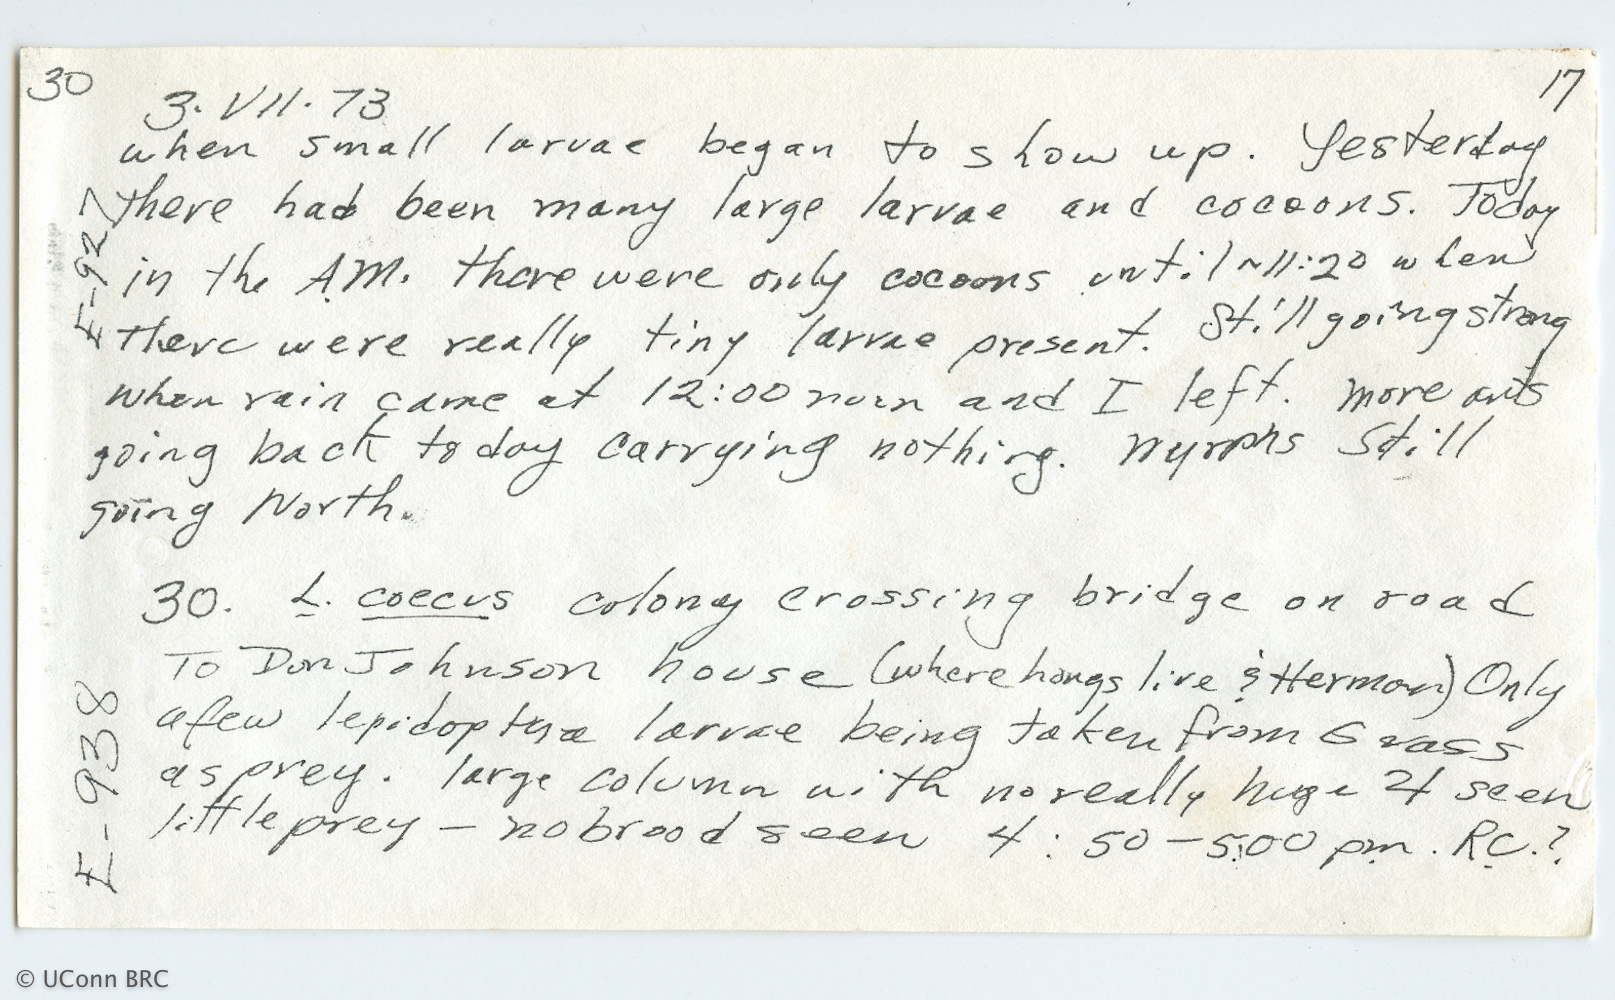 30
17
3. VII. 73
when small larvae began to show up. Yesterday
there had been many large larvae and cocoons. Today
in the A.M. there were only cocoons until ~11:20 when
there were really tiny larvae present. Still going strong
when rain came at 12:00 noon and I left. More ants
going back today carrying nothing. Nymphs still
going North.
E-927
30. L. coecus colony crossing bridge on road
To Don Johnson house (where live & Herman) Only
a few lepidoptera larvae being taken from Grass
as prey. large column with no really huge 4 seen
little prey — no brood seen 4:50–5:00 pm. RC.?
E-938
© UConn BRC